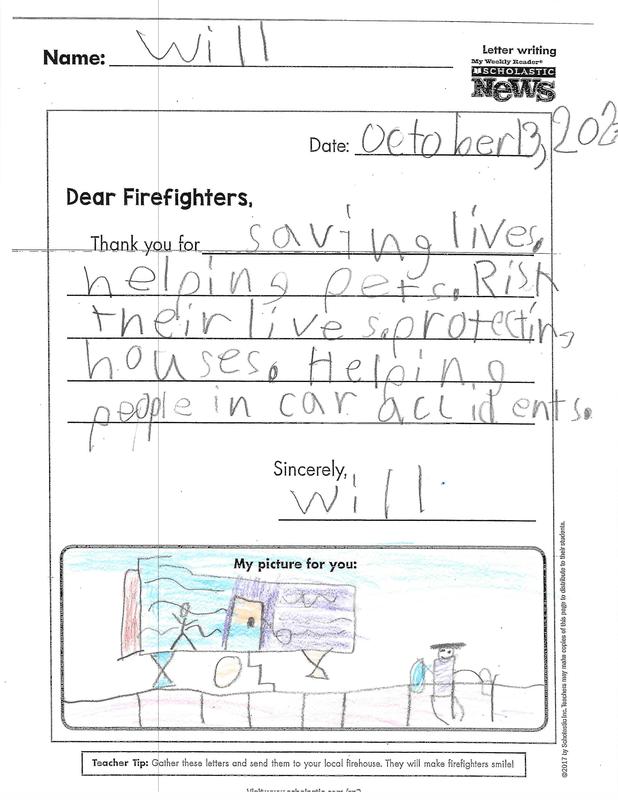 Name: Will
Letter writing
My Weekly Reader®
SCHOLASTIC
News
Date: October 13, 202
Dear Firefighters,
Thank you for saving lives.
helping pets. Risk
their lives. protecting
houses. Helping
people in car accidents.
Sincerely,
Will
My picture for you:
©2017 by Scholastic Inc. Teachers may make copies of this page to distribute to their students.
Teacher Tip: Gather these letters and send them to your local firehouse. They will make firefighters smile!